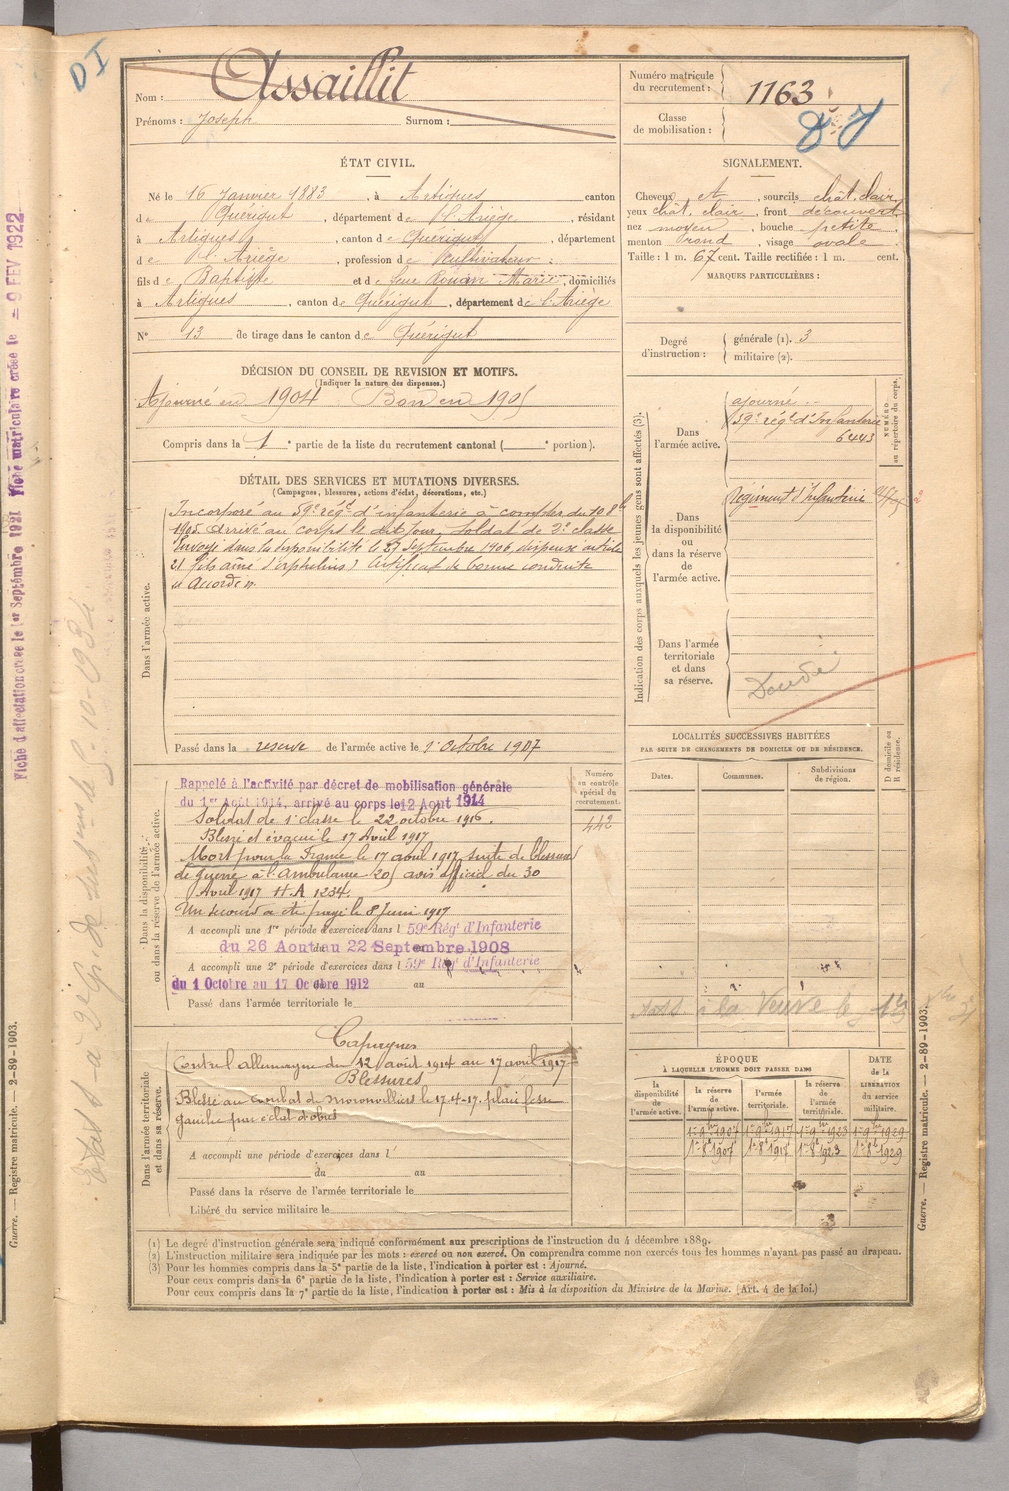 D I
Nom : Assaillit
Prénoms : Joseph Surnom :
Numéro matricule
du recrutement : 1163
Classe
de mobilisation :
ÉTAT CIVIL.
Né le 16 Janvier 1883, à Artigues canton
de Quérigut, département de l'Ariège, résidant
à Artigues, canton de Quérigut, département
de l'Ariège, profession de cultivateur
fils de Baptiste et de feue Rouan Marie, domiciliés
à Artigues, canton de Quérigut, département de l'Ariège
N° 13 de tirage dans le canton de Quérigut
SIGNALEMENT.
Cheveux et, sourcils chât. clair
yeux chât. clair, front découvert
nez moyen, bouche petite
menton rond, visage ovale
Taille : 1 m. 67 cent. Taille rectifiée : 1 m. cent.
MARQUES PARTICULIÈRES :
Degré
d'instruction :
générale (1). 3
militaire (2).
DÉCISION DU CONSEIL DE REVISION ET MOTIFS.
(Indiquer la nature des dispenses.)
Ajourné en 1904 Bon en 1905
Compris dans la 1e partie de la liste du recrutement cantonal ( e portion).
DÉTAIL DES SERVICES ET MUTATIONS DIVERSES.
(Campagnes, blessures, actions d'éclat, décorations, etc.)
Dans l'armée active.
Incorporé au 59e régt d'infanterie à compter du 10 8bre
1905. Arrivé au corps le dit jour, soldat de 2e classe
Envoyé dans la disponibilité le 23 Septembre 1906, dispensé article
21 (fils aîné d'orphelins) Certificat de bonne conduite
"Accordé".
Passé dans la réserve de l'armée active le 1 Octobre 1907
Indication des corps auxquels les jeunes gens sont affectés (3).
NUMÉRO
au répertoire du corps.
Dans
l'armée active.
ajourné
59e régt d'Infanterie
6443
Dans
la disponibilité
ou
dans la réserve
de
l'armée active.
Régiment d'Infanterie
Dans l'armée
territoriale
et dans
sa réserve.
LOCALITÉS SUCCESSIVES HABITÉES
PAR SUITE DE CHANGEMENTS DE DOMICILE OU DE RÉSIDENCE.
D domicile ou
R résidence.
Dates. Communes. Subdivisions
de région.
Dans la disponibilité
ou dans la réserve de l'armée active.
Numéro
au contrôle
spécial du
recrutement.
442
Rappelé à l'activité par décret de mobilisation générale
du 1er Août 1914, arrivé au corps le 12 Août 1914
Soldat de 1e classe le 22 octobre 1916.
Blessé et évacué le 17 Avril 1917
Mort pour la France le 17 avril 1917, suite de blessures
de guerre à l'ambulance 205 avis officiel du 30
Avril 1917 H.A 1234
Un secours a été payé le 8 Juin 1917
A accompli une 1re période d'exercices dans l 59e Rég' d'Infanterie
du 26 Aout au 22 Septembre 1908
A accompli une 2e période d'exercices dans l 59e Rég' d'Infanterie
du 1 Octobre au 17 Octobre 1912 au
Passé dans l'armée territoriale le
à la Veuve le
Dans l'armée territoriale
et dans sa réserve.
Campagnes
Contre l'allemagne du 12 août 1914 au 17 avril 1917
Blessures
Blessé au combat de moronvilliers le 17-4-17. plaie fesse
gauche par éclat d'obus
A accompli une période d'exercices dans l
du au
Passé dans la réserve de l'armée territoriale le
Libéré du service militaire le
ÉPOQUE
À LAQUELLE L'HOMME DOIT PASSER DANS
la
disponibilité
de
l'armée active.
la réserve
de
l'armée active.
l'armée
territoriale.
la réserve
de
l'armée
territoriale.
DATE
de la
LIBÉRATION
du service
militaire.
1er 9bre 1907 1er 9bre 1917 1er 9bre 1923 1er 9bre 1929
1er 8bre 1907 1er 8bre 1917 1er 8bre 1923 1er 8bre 1929
(1) Le degré d'instruction générale sera indiqué conformément aux prescriptions de l'instruction du 4 décembre 1889.
(2) L'instruction militaire sera indiquée par les mots : exercé ou non exercé. On comprendra comme non exercés tous les hommes n'ayant pas passé au drapeau.
(3) Pour les hommes compris dans la 5e partie de la liste, l'indication à porter est : Ajourné.
Pour ceux compris dans la 6e partie de la liste, l'indication à porter est : Service auxiliaire.
Pour ceux compris dans la 7e partie de la liste, l'indication à porter est : Mis à la disposition du Ministre de la Marine. (Art. 4 de la loi.)
Guerre. — Registre matricule. — 2-89-1903.
Guerre. — Registre matricule. — 2-89-1903.
Fiche d'affectation créée le 1er Septembre 1921 Fiche matriculaire créée le 9 FEV 1922